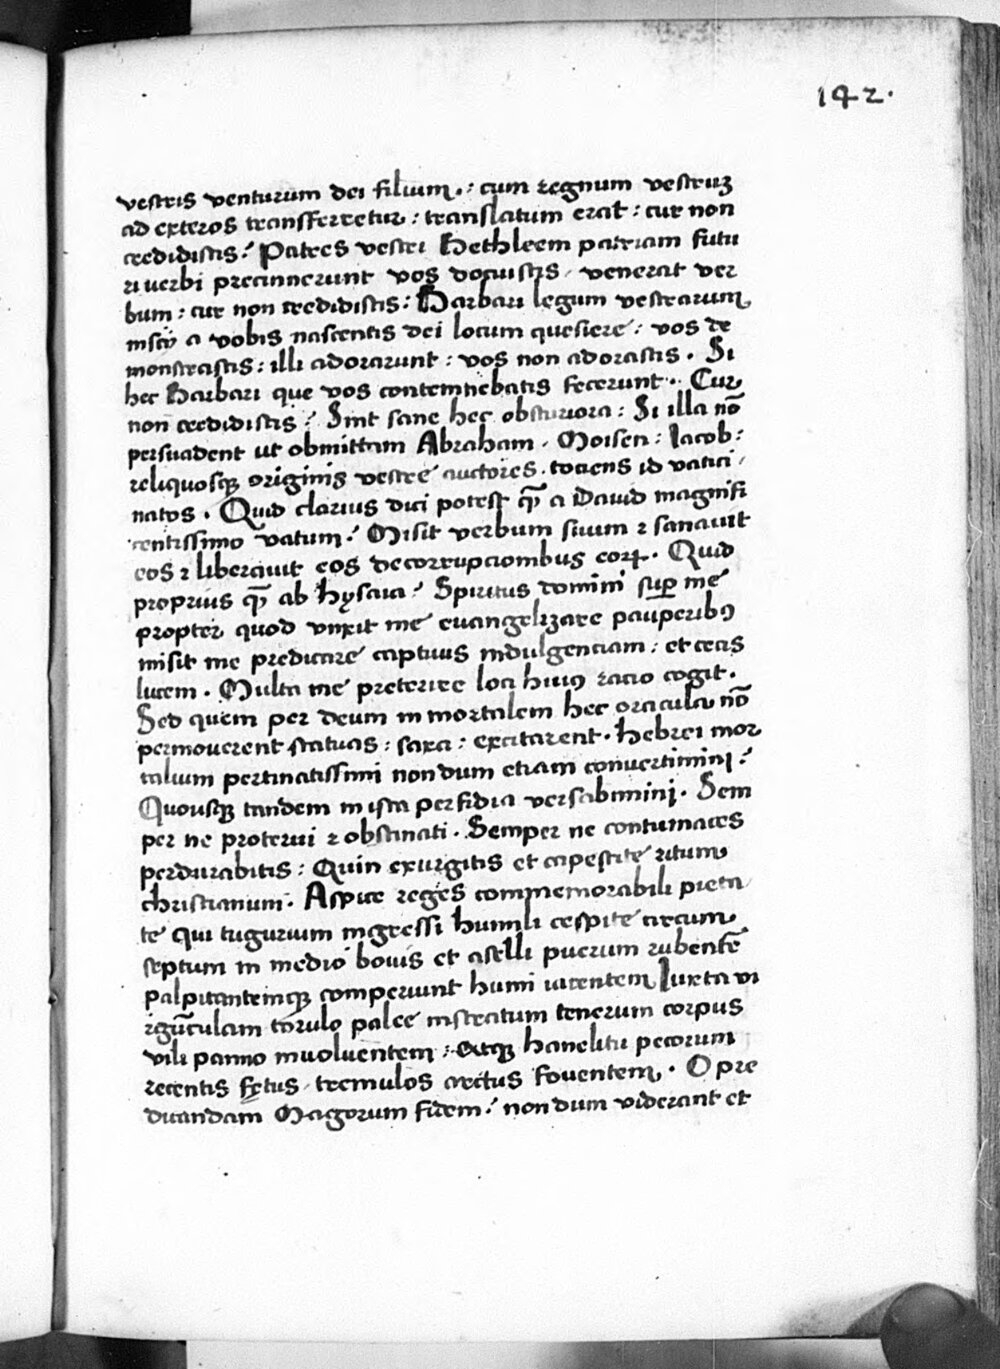 142.
vestris venturum dei filium. : cum regnum vestruʒ
ad exteros transferretur : translatum erat : cur non
credidistis ? Patres vestri Bethleem patriam futu
ri verbi precinnerunt vos docuistis , venerat ver
bum : cur non credidistis : Barbari legum vestrarum
inscij a vobis nascentis dei locum quesiere : vos de
monstrastis : illi adorarunt : vos non adorastis . Si
hec Barbari que vos contemnebatis fecerunt . Cur
non credidistis ? Sint sane hec obscuriora : Si illa nō
persuadent ut obmittam Abraham . Moisen : Iacob :
reliquosqꝫ originis vestre auctores . tociens id vatici
natos . Quid clarius dici potest qꝫ̄ a David magnifi
centissimo vatum ? Misit verbum suum ⁊ sanavit
eos ⁊ liberavit eos de corrupcionibus coꝝ . Quid
proprius qꝫ̄ ab hysaia ? Spiritus domini suꝑ me
propter quod vnxit me evangelizare pauperibꝰ
misit me predicare captivis indulgentiam : et cecis
lucem . Multa me preterire loci huiꝰ racio cogit .
Sed quem per deum in mortalem hec oracula nō
permoverent statuas : saxa : excitarent . hebrei mor
talium pertinatissimi nondum etiam convertimini ?
Quousqꝫ tandem in ista perfidia versabimini . Sem
per ne protervi ⁊ obstinati . Semper ne contumaces
perdurabitis : Quin exurgitis et capescite ritum
christianum . Aspice reges commemorabili pieta
te qui tugurium ingressi humili cespite circum
septum in medio bovis et aselli puerum rubentē
palpitantemqꝫ comperiunt humi iacentem Iuxta vi
rgūculam torulo palee instratum tenerum corpus
vili panno involventem : atqꝫ hanelitu pecorum
recentis fętus tremulos arctus foventem . O pre
dicandam Magorum fidem ? nondum viderant et